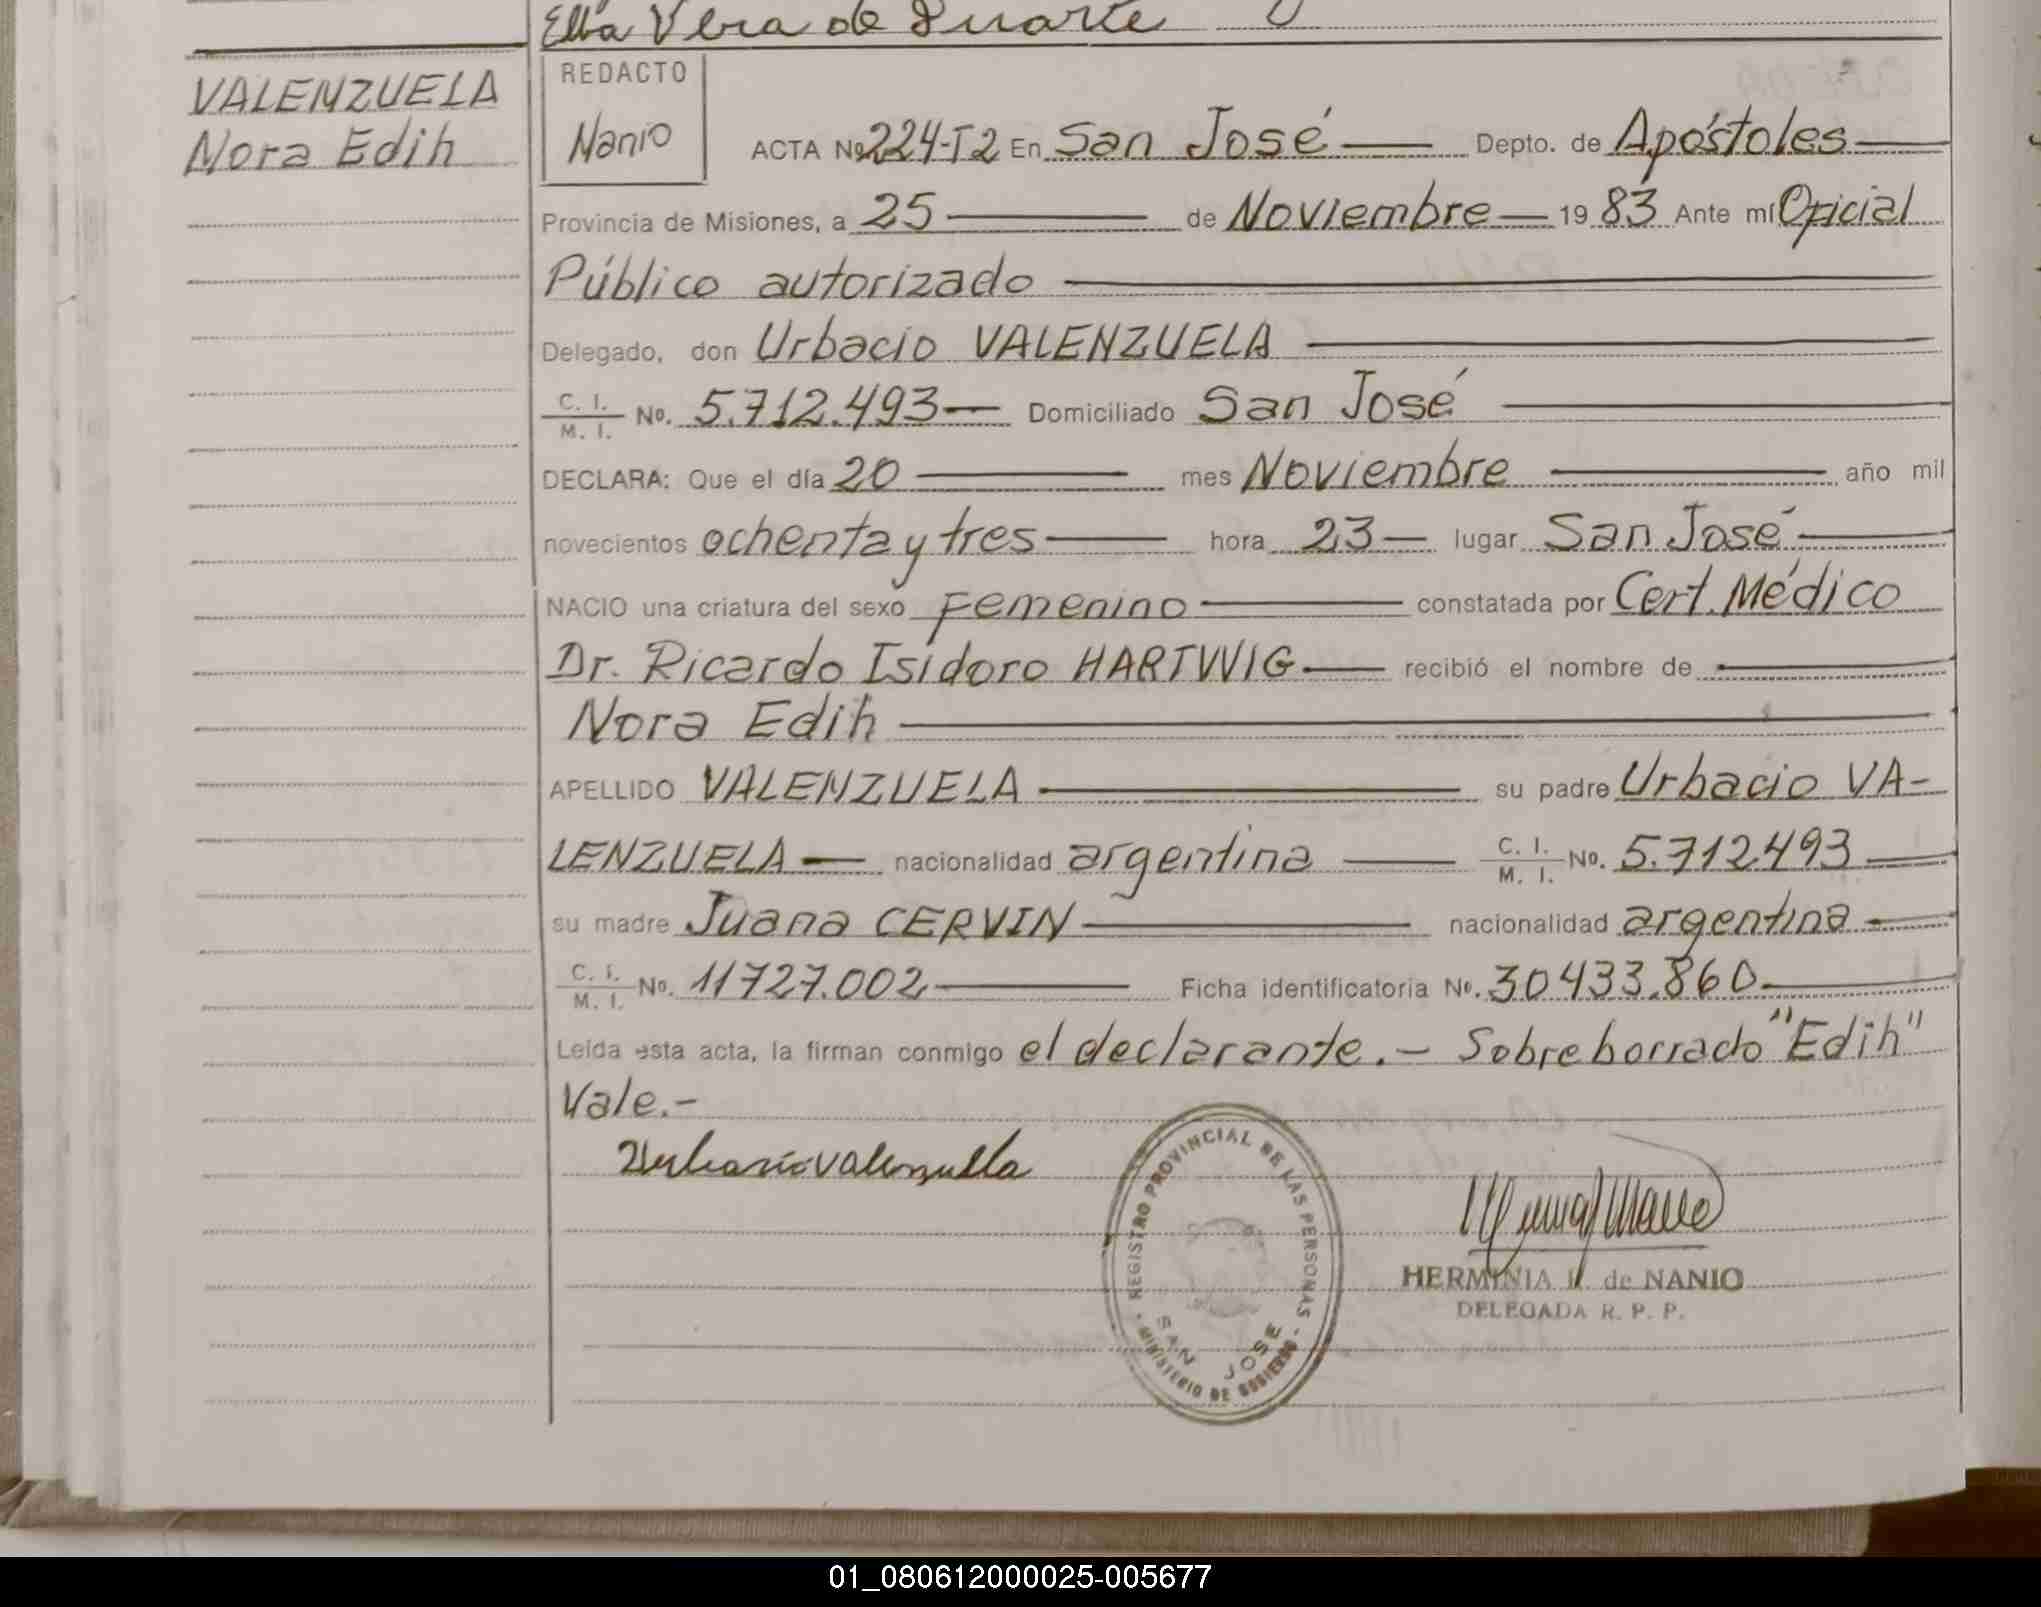 Elba Vera de Duarte
VALENZUELA
Nora Edih
REDACTO
Nanio
ACTA Nº 224-T2 En San José Depto. de Apóstoles
Provincia de Misiones, a 25 de Noviembre 1983 Ante mí Oficial
Público autorizado
Delegado, don Urbacio VALENZUELA
C. I. / M. I. No. 5.712.493 Domiciliado San José
DECLARA: Que el día 20 mes Noviembre año mil
novecientos ochenta y tres hora 23 lugar San José
NACIO una criatura del sexo Femenino constatada por Cert. Médico
Dr. Ricardo Isidoro HARTWIG recibió el nombre de
Nora Edih
APELLIDO VALENZUELA su padre Urbacio VA-
LENZUELA nacionalidad argentina C. I. / M. I. No. 5.712.493
su madre Juana CERVIN nacionalidad argentina
C. I. / M. I. No. 11727.002 Ficha identificatoria No. 30433.860
Leída esta acta, la firman conmigo el declarante.- Sobreborrado "Edih"
Vale.-
Urbacio valenzuela
REGISTRO PROVINCIAL DE LAS PERSONAS
SAN JOSE
MINISTERIO DE GOBIERNO
HERMINIA de NANIO
DELEGADA R. P. P.
01_080612000025-005677